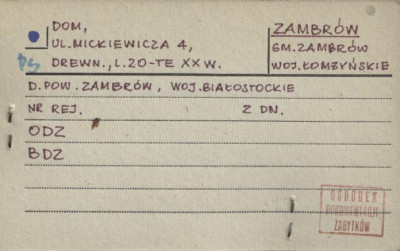 DOM,
UL.MICKIEWICZA 4,
DREWN., L.20-TE XX W.
ZAMBRÓW
GM.ZAMBRÓW
WOJ.ŁOMŻYŃSKIE
D.POW. ZAMBRÓW, WOJ.BIAŁOSTOCKIE
NR REJ. Z DN.
ODZ
BDZ
OŚRODEK
DOKUMENTACJI
ZABYTKÓW